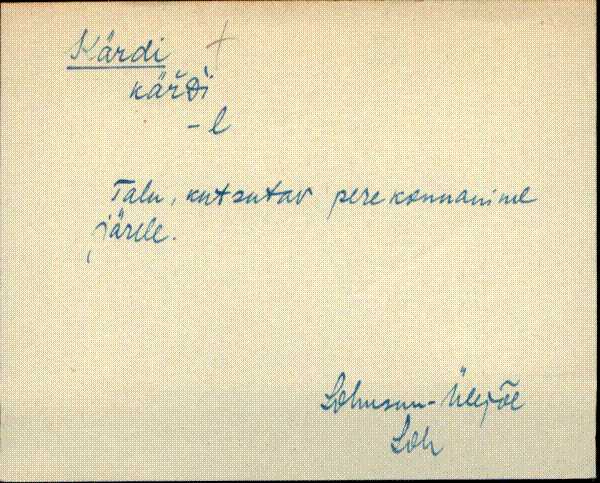 Kärdi +
käŕďi
-l
Talu, kutsutav perekonnanime
järele.
Lohusuu-Ülejõe
Loh